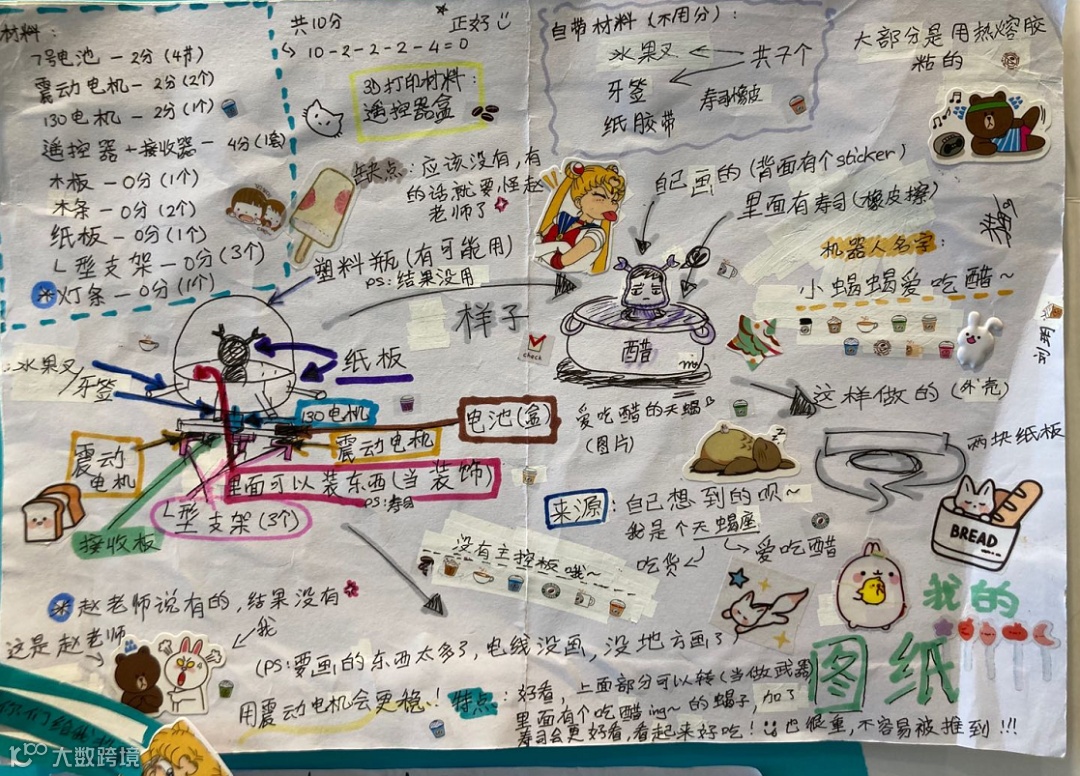 材料：
7号电池 — 2分（4节）
震动电机 — 2分（2个）
130电机 — 2分（1个）
遥控器＋接收器 — 4分（1套）
木板 — 0分（1个）
木条 — 0分（2个）
纸板 — 0分（1个）
L型支架 — 0分（3个）
灯条 — 0分（1个）
共10分
正好
10-2-2-2-4=0
3D打的材料：
遥控器盒
自带材料（不用分）：
水果叉
共7个
牙签
寿司橡皮
纸胶带
大部分是用热熔胶
粘的
缺点：应该没有，有
的话就要怪赵
老师了
塑料瓶（有可能用）
ps：结果没用
样子
自己画的（背面有个sticker）
里面有寿司（橡皮擦）
机器人名字：
小蝎蝎爱吃醋~
醋
check
爱吃醋的天蝎
（图片）
这样做的（外壳）
两块纸板
水果叉/
牙签
纸板
130电机
电池（盒）
震动
电机
震动电机
里面可以装东西（当装饰）
ps：寿司
L型支架（3个）
接收板
来源：自己想到的呗~
我是个天蝎座
吃货
爱吃醋
没有主控板哦~
BREAD
赵老师说有的，结果没有
这是赵老师
我
(ps：要画的东西太多了，电线没画，没地方画了
用震动电机会更稳！
特点：好看，上面部分可以转（当做武器
里面有个吃醋ing~的蝎子，加了
寿司会更好看，看起来好吃！也很重，不容易被推到!!!
我的
图纸
你们给我
大数跨境